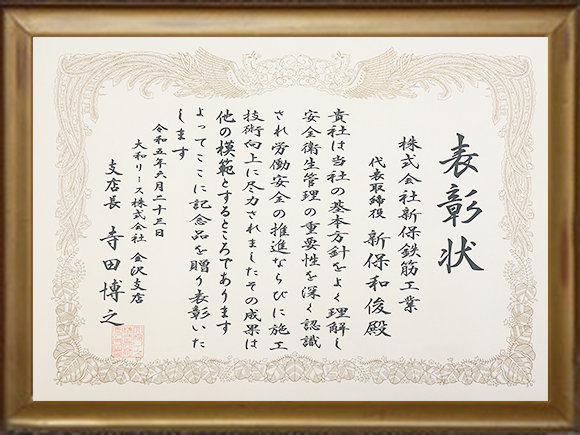 表彰状
株式会社新保鉄筋工業
代表取締役 新保和俊殿
貴社は当社の基本方針をよく理解し
安全衛生管理の重要性を深く認識
され労働安全の推進ならびに施工
技術向上に尽力されましたその成果は
他の模範とするところであります
よってここに記念品を贈り表彰いた
します
令和五年六月二十三日
大和リース株式会社 金沢支店
支店長 寺田博之